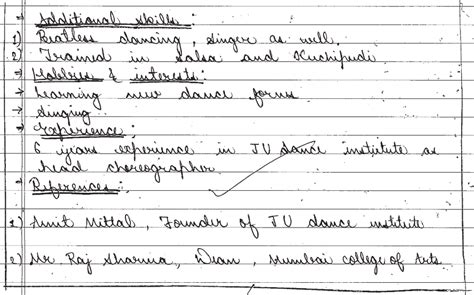 ⇒ Additional skills :
1) Beatless dancing, singer as well.
2) Trained in salsa and Kuchipudi
⇒ Hobbies & interests :
→ Learning new dance forms
→ Singing
⇒ Experience :
6 years experience in JU dance institute as
head choreographer.
⇒ References :
1) Amit Mittal, Founder of JU dance institute
2) Mr. Raj Sharma, Dean, Mumbai college of Arts.